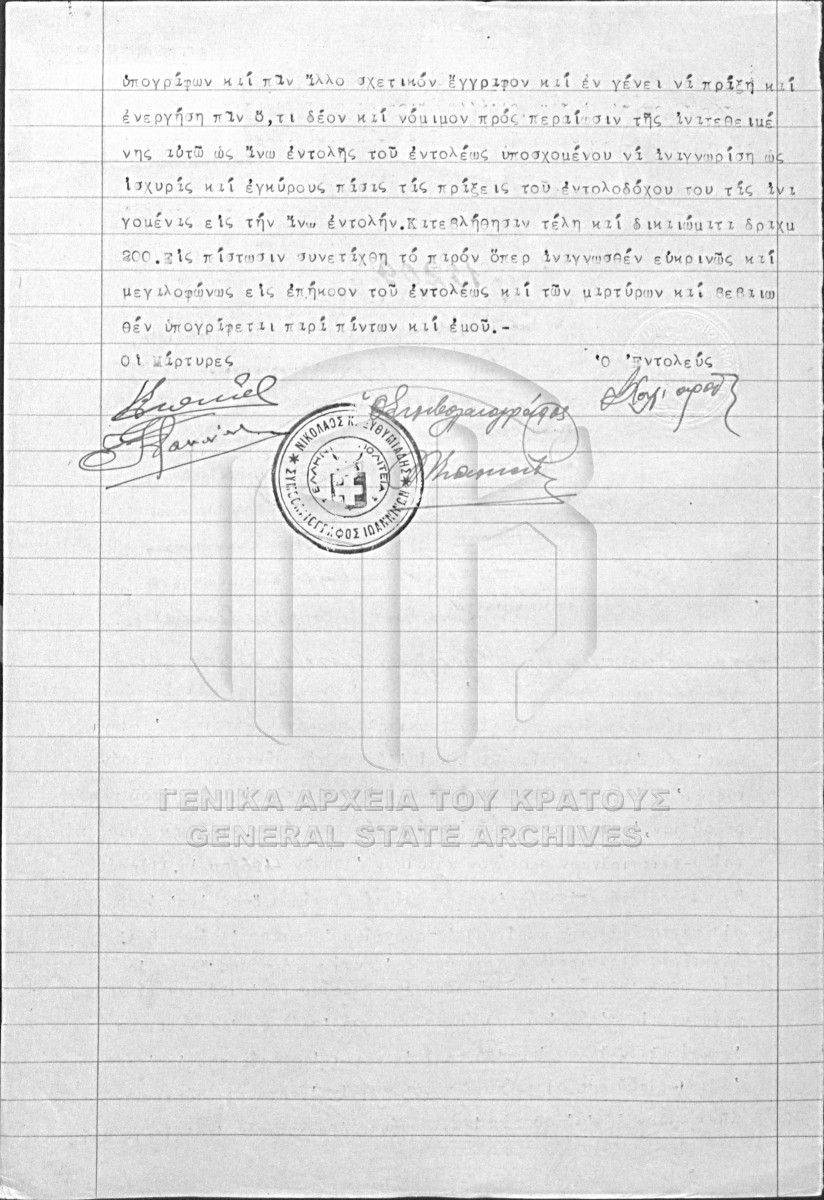 ὑπογράφων καί πᾶν ἄλλο σχετικόν ἔγγραφον καί ἐν γένει νά πράξῃ καί
ἐνεργήσῃ πᾶν ὅ,τι δέον καί νόμιμον πρός περαίωσιν τῆς ἀνατεθειμέ
νης αὐτῶ ὡς ἄνω ἐντολῆς τοῦ ἐντολέως ὑποσχομένου νά ἀναγνωρίσῃ ὡς
ἰσχυράς καί ἐγκύρους πάσας τάς πράξεις τοῦ ἐντολοδόχου του τάς ἀνα
γομένας εἰς τήν ἄνω ἐντολήν.Κατεβλήθησαν τέλη καί δικαιώματα δραχμ
200.Εἰς πίστωσιν συνετάχθη τό παρόν ὅπερ ἀναγνωσθέν εὐκρινῶς καί
μεγαλοφώνως εἰς ἐπήκοον τοῦ ἐντολέως καί τῶν μαρτύρων καί βεβαιω
θέν ὑπογράφεται παρά πάντων καί ἐμοῦ.-
Οἱ Μάρτυρες Ὁ Ἐντολεύς
Ὁ Συμβολαιογράφος
ΝΙΚΟΛΑΟΣ Κ. ΕΥΘΥΜΙΑΔΗΣ
ΕΛΛΗΝΙΚΗ ΠΟΛΙΤΕΙΑ
ΣΥΜΒΟΛΑΙΟΓΡΑΦΟΣ ΙΩΑΝΝΙΝΩΝ
ΓΕΝΙΚΑ ΑΡΧΕΙΑ ΤΟΥ ΚΡΑΤΟΥΣ
GENERAL STATE ARCHIVES